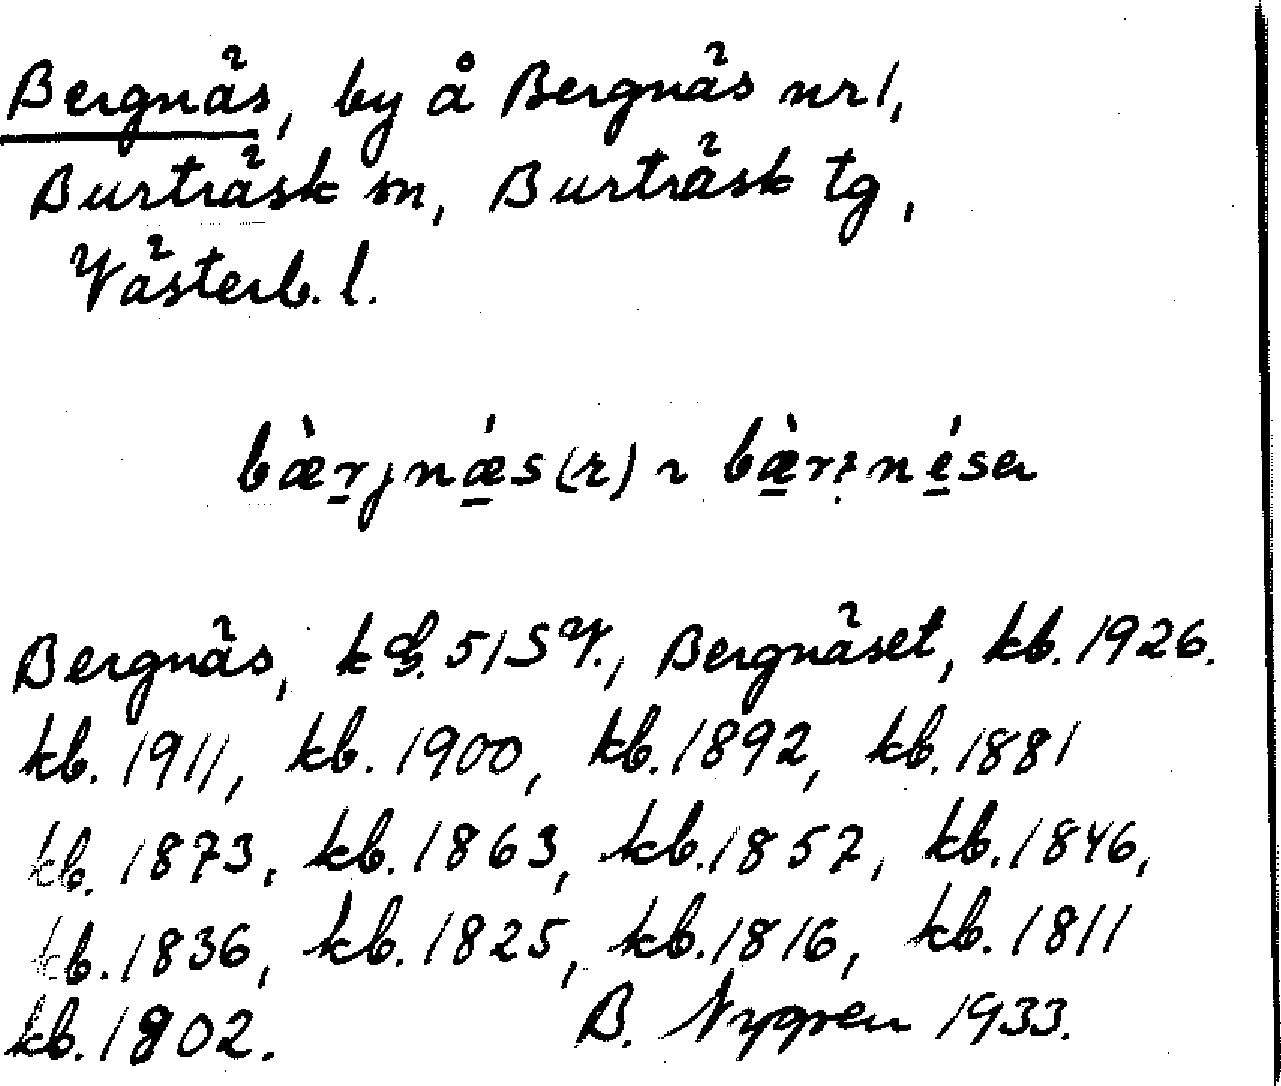 Bergnäs, by å Bergnäs nr 1,
Burträsk sn, Burträsk tg,
Västerb. l.
bæ̀rjnǽs(r) ~ bæ̀rjnésa
Bergnäs, kb. 51 SV., Bergnäset, kb. 1926.
kb. 1911, kb. 1900, kb. 1892, kb. 1881
kb. 1873, kb. 1863, kb. 1857, kb. 1846,
kb. 1836, kb. 1825, kb. 1816, kb. 1811
kb. 1802. B. Nygren 1933.